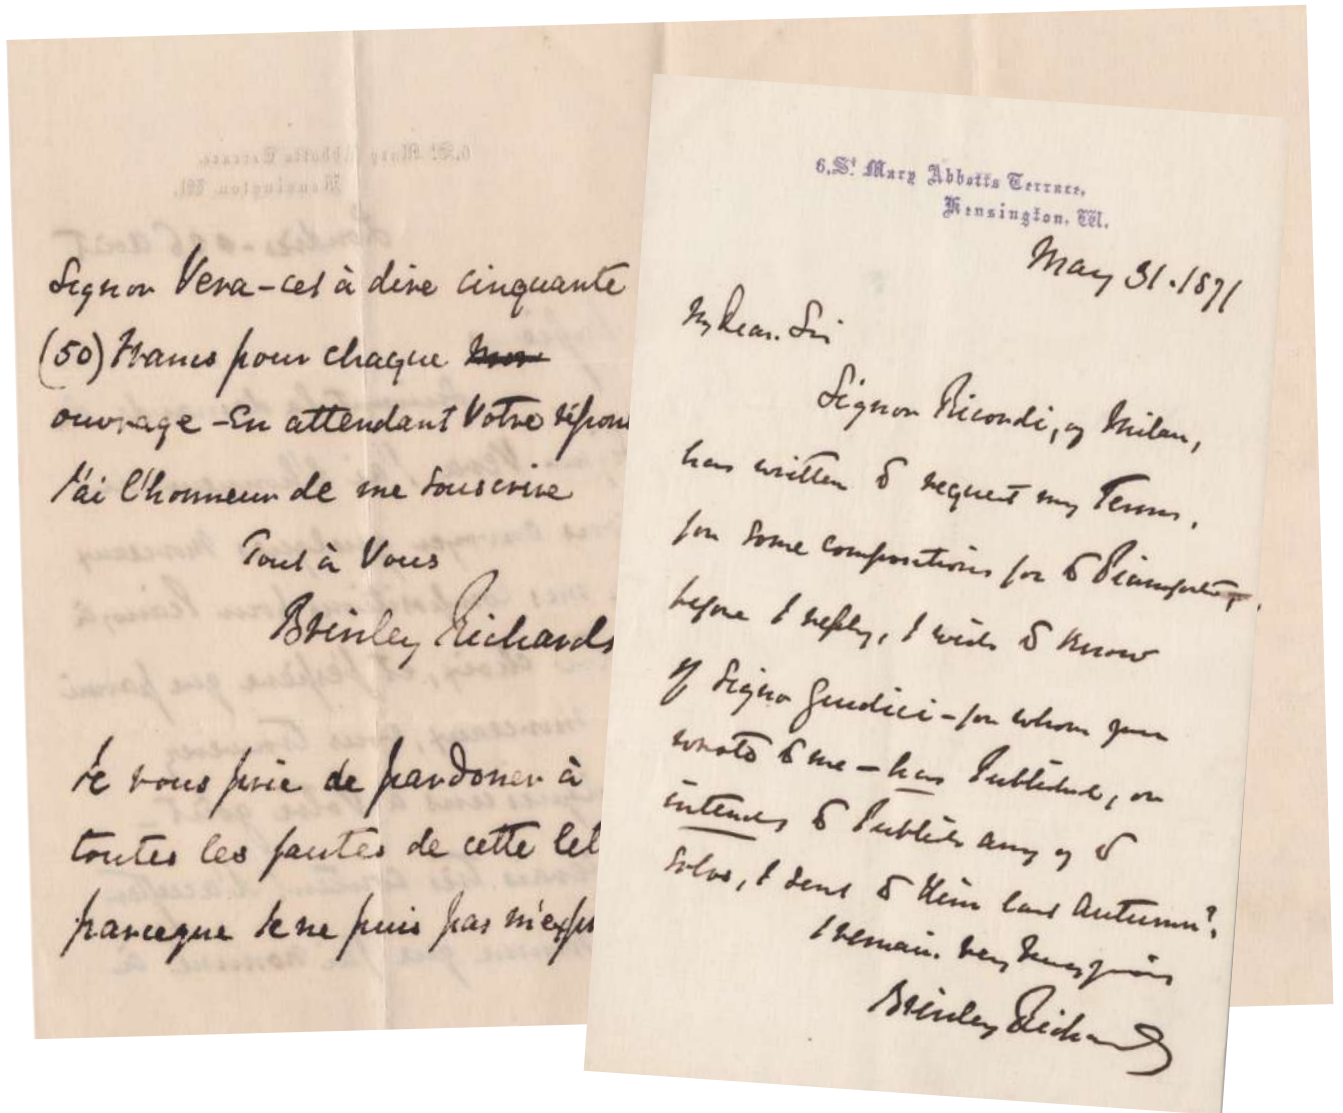 Signor Vera - cet à dire cinquante
(50) Francs pour chaque
ouvrage - En attendant Votre répon
J'ai l'honneur de me souscrire
Tout à Vous
Brinley Richards
Je vous prie de pardoner à
toutes les fautes de cette let
parceque Je ne puis pas m'exp
6, St. Mary Abbotts Terrace,
Kensington, W.
May 31. 1871
My Dear Sir
Signor Ricordi, of Milan,
has written to request my Terms,
for some compositions for to Pianoforte,
before I reply, I wish to know
if Signor Giudici - for whom you
wrote to me - has Published, or
intends to Publish any of to
Solos, I sent to Him last Autumn?
I remain. very truly yours
Brinley Richards